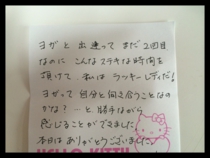 ヨガと出逢ってまだ2回目
なのにこんなステキな時間を
頂けて、私はラッキーレディだ!
ヨガって自分と向き合うことなの
かな?…と、勝手ながら
感じることができました
本日はありがとうございました!
HELLO KITTY